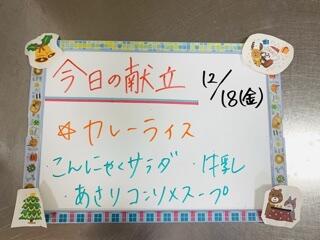 今日の献立
12/18(金)
☆カレーライス
・こんにゃくサラダ ・牛乳
・あさりコンソメスープ